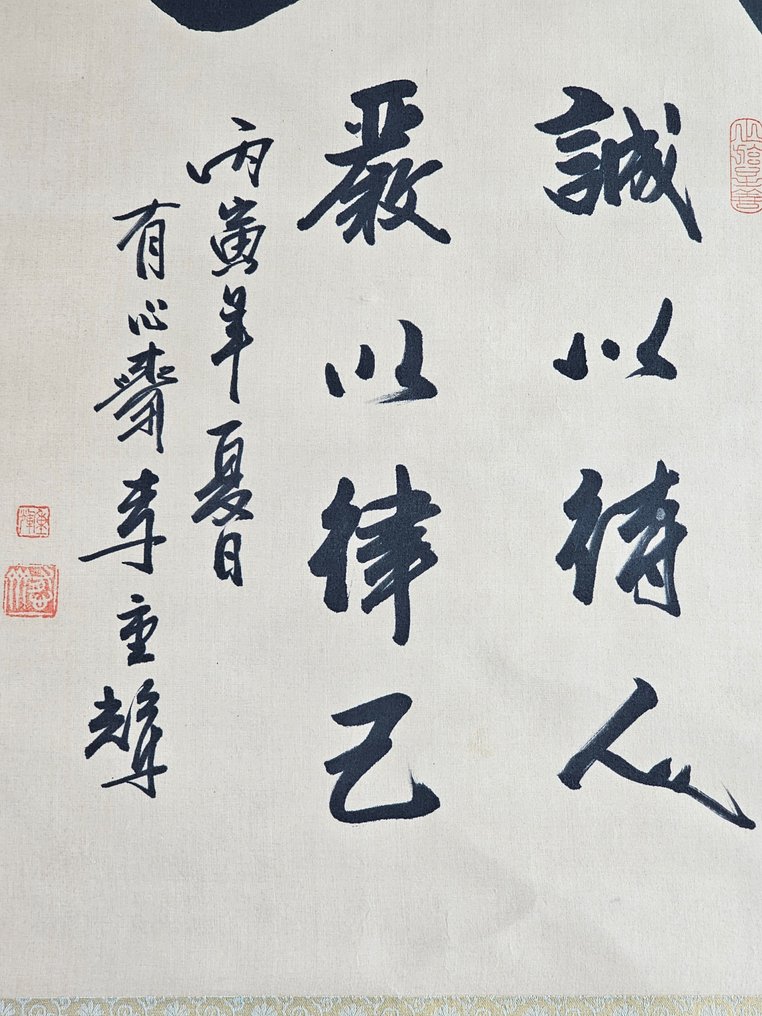 誠以待人
嚴以律己
丙寅年夏日
有心齋李重輝